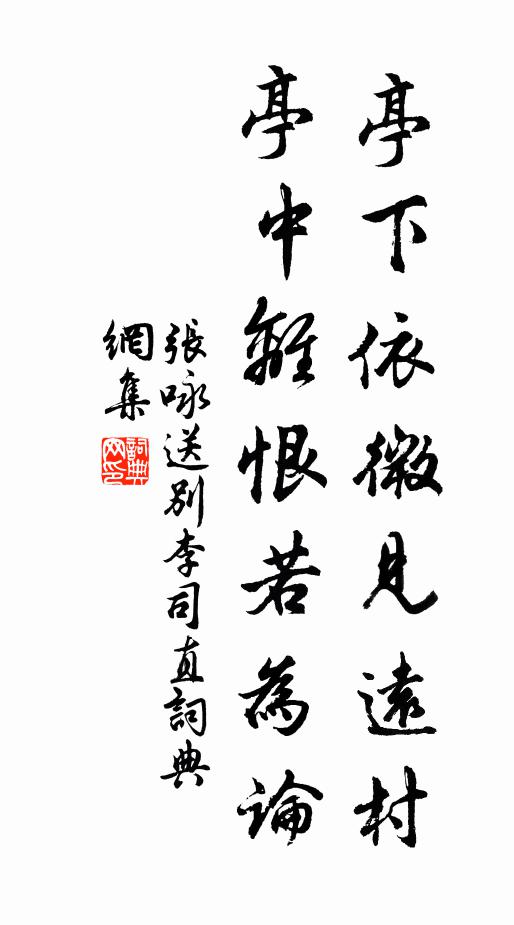 亭下依微見遠村
亭中離恨若為論
張咏送別李司直詞典
網集
詞典
网印